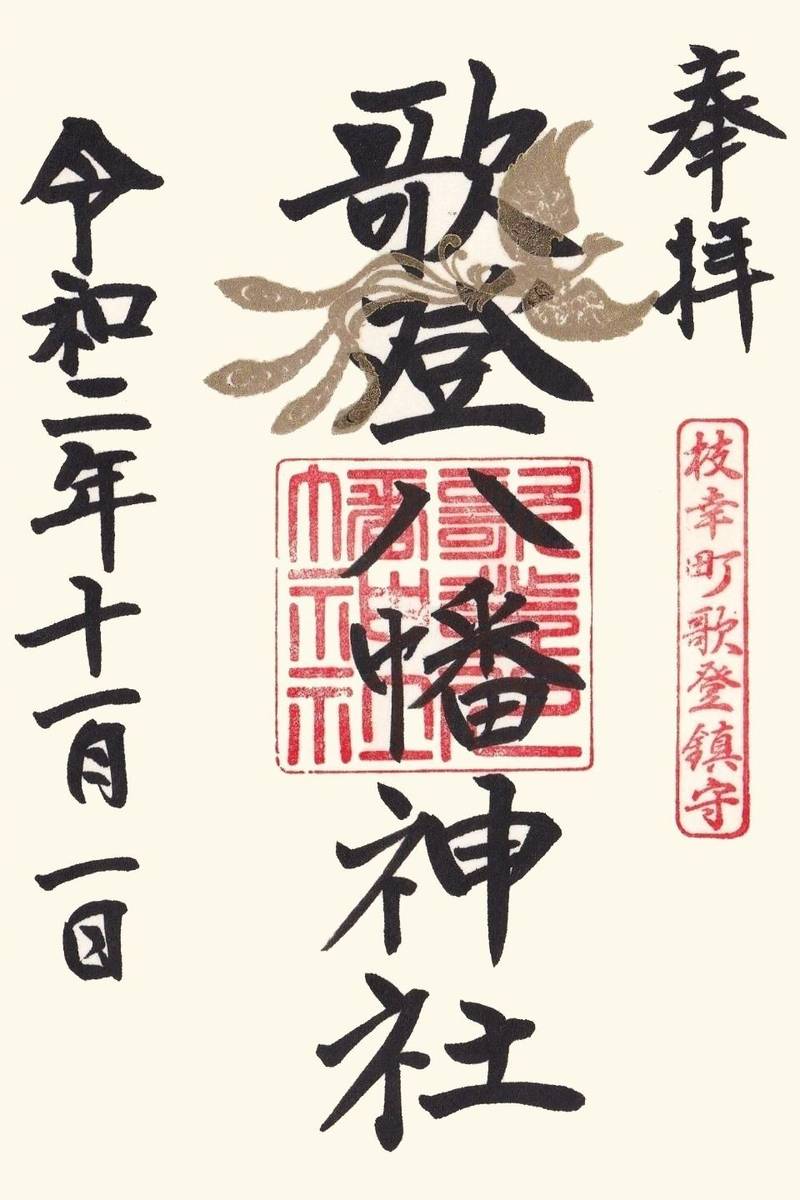 奉拝
枝幸町歌登鎮守
歌登八幡神社
歌登八幡神社
令和二年十一月一日